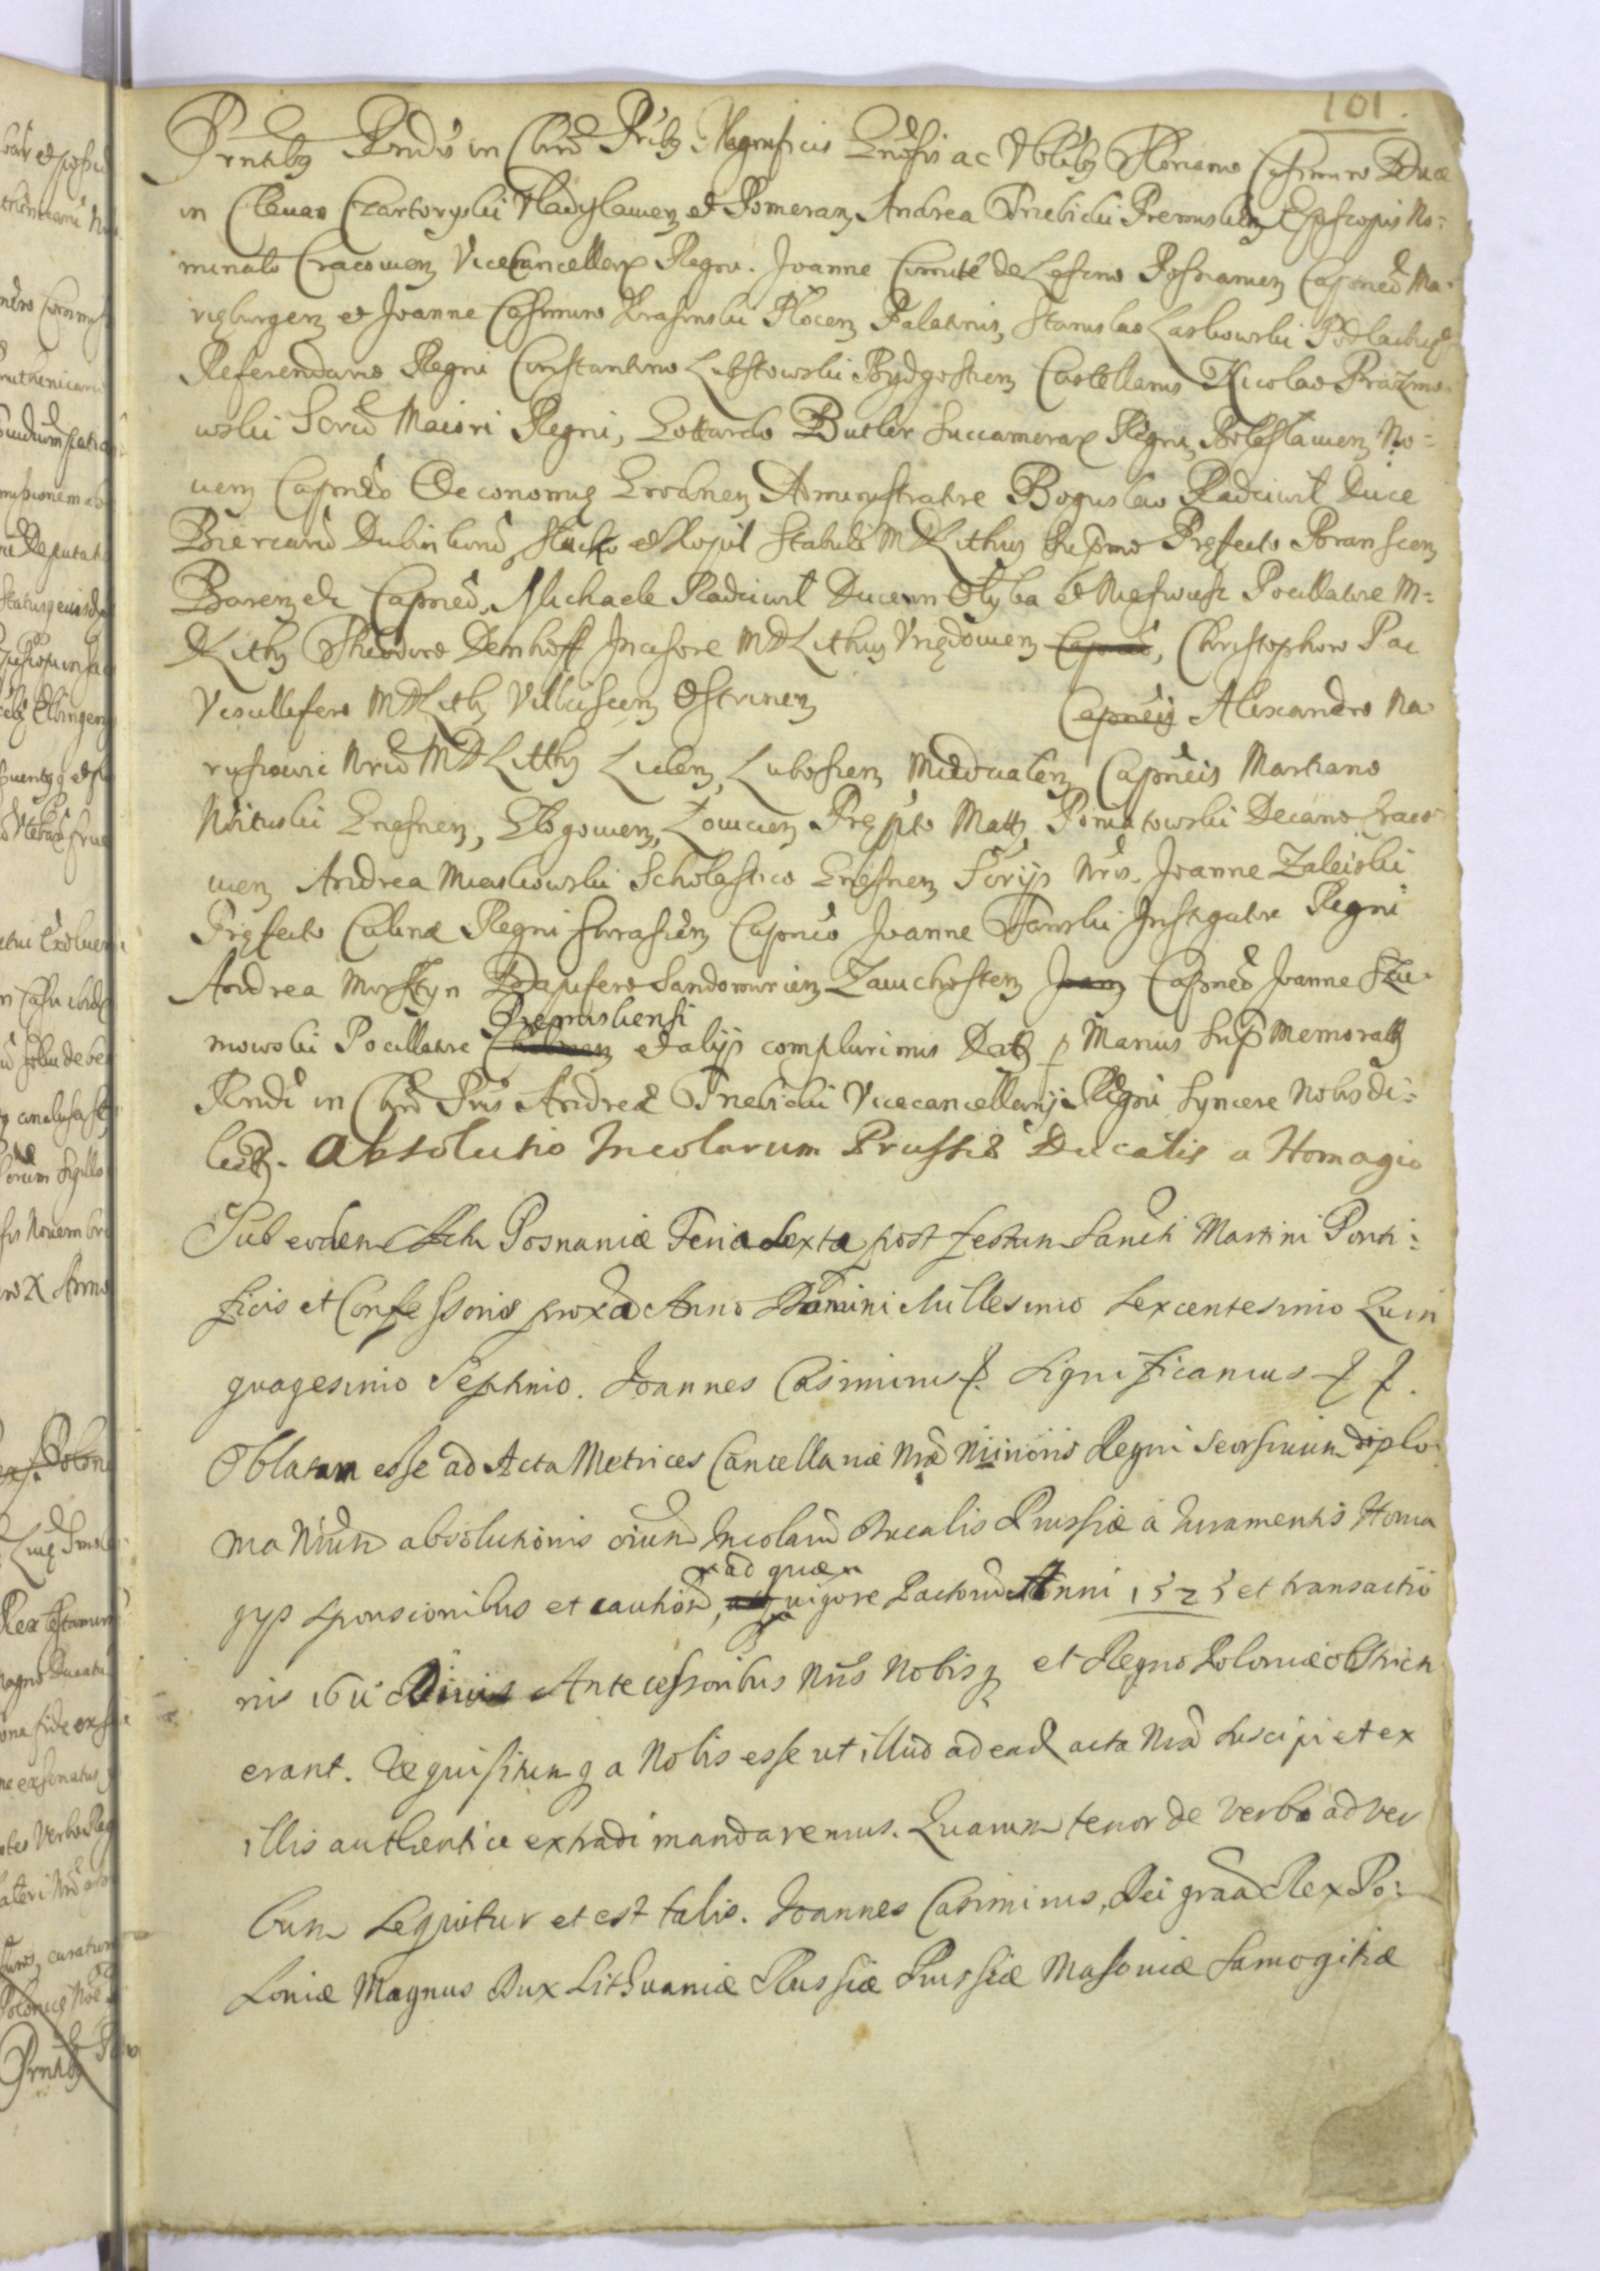 101.
Prntibus Rndis in Chro Pribus Magnificis Gnosis ac Nblibus Floriano Casimiro Duce
in Clevan Czartoryski Vladyslawien et Pomeran, Andrea Trzebicki Premislien Episcopis No:
minato Cracovien Vicecancellario Regni. Joanne Comite de Leszno Posnanien Capneo Ma-
rieburgen et Joanne Casimiro Krasinski Plocen Palatinis, Stanislao Laskowski Podlachiæ
Referendario Regni Constantino Lubstowski Bydgostien Castellanis Nicolao Prazmo-
wski Scrio Maiori Regni, Gottardo Butler Succamerar Regni, Boleslawien, No=
uen Capneo Oeconomiæ Grodnen Administratore Boguslao Radziwil Duce
Birzarum Dubinkorum Slucko et Kopil Stabuli MDLithuæ Supmo Præfecto Branscen
Baren etc Capneo. Michaele Radziwil Duce in Olyka et Nieswisz Pocillatore M=
DLith Theodoro Denhoff Incisore MDLithuæ Urzędowen Capneo, Christophoro Pac
Vexillifero MDLith Vilkiscen Ostrinen Capneis Alexandro Na
ruszowic Nrio MDLitth Liden, Lubosien, Miadzialen Capneis Martiano
Wituski Gnesnen, Glogowien, Lowicien Præpto Matth. Poniatowski Decano Craco-
uien Andrea Miaskowski Scholastico Gnesnen Scrijs Nris. Joanne Zaleiski
Præfecto Culinæ Regni Sieraszien Capneo Joanne Tanski Instigatore Regni
Andrea Morsztyn Dapifero Sandomirien Zawichosten Joan Capneo Joanne Szu-
mowski Pocillatore Premisliensi et alijs complurimis Dat p Manus Sup Memorati
Rndi in Chro Pris Andreæ Trzebicki Vicecancellarij Regni Syncere Nobis di:
lecti. Absolutio Incolarum Prussiæ Ducalis a Homagio
Sub eodem Actu Posnaniæ Feria Sexta post festum Sancti Martini Ponti:
ficis et Confessoris prox̃a Anno Domini Millesimo Sexcentesimo Quin
quagesimo Septimo. Joannes Casimirus &. Significamus & &.
Oblatum esse ad Acta Metrices Cancellariæ Nræ Minoris Regni seorsivum diplo
ma Nrum absolutionis oium Incolarum Ducalis Prussiæ a Iuramentis Homa
gijs sponsionibus et cautionum, ad quæ vigore Pactorum Anni 1525 et transactio
nis 1611 Divis Antecessoribus Nris Nobisq et Regno Poloniæ obstricti
erant. Requisitumq a Nobis esse ut illud ad eadem acta Nra suscipi et ex
illis authentice extradi mandaremus. Quarum tenor de verbo ad ver
bum sequitur et est talis. Joannes Casimirus, Dei gratia Rex Po:
loniæ Magnus Dux Lithuaniæ Russiæ Prussiæ Masoviæ Samogitiæ